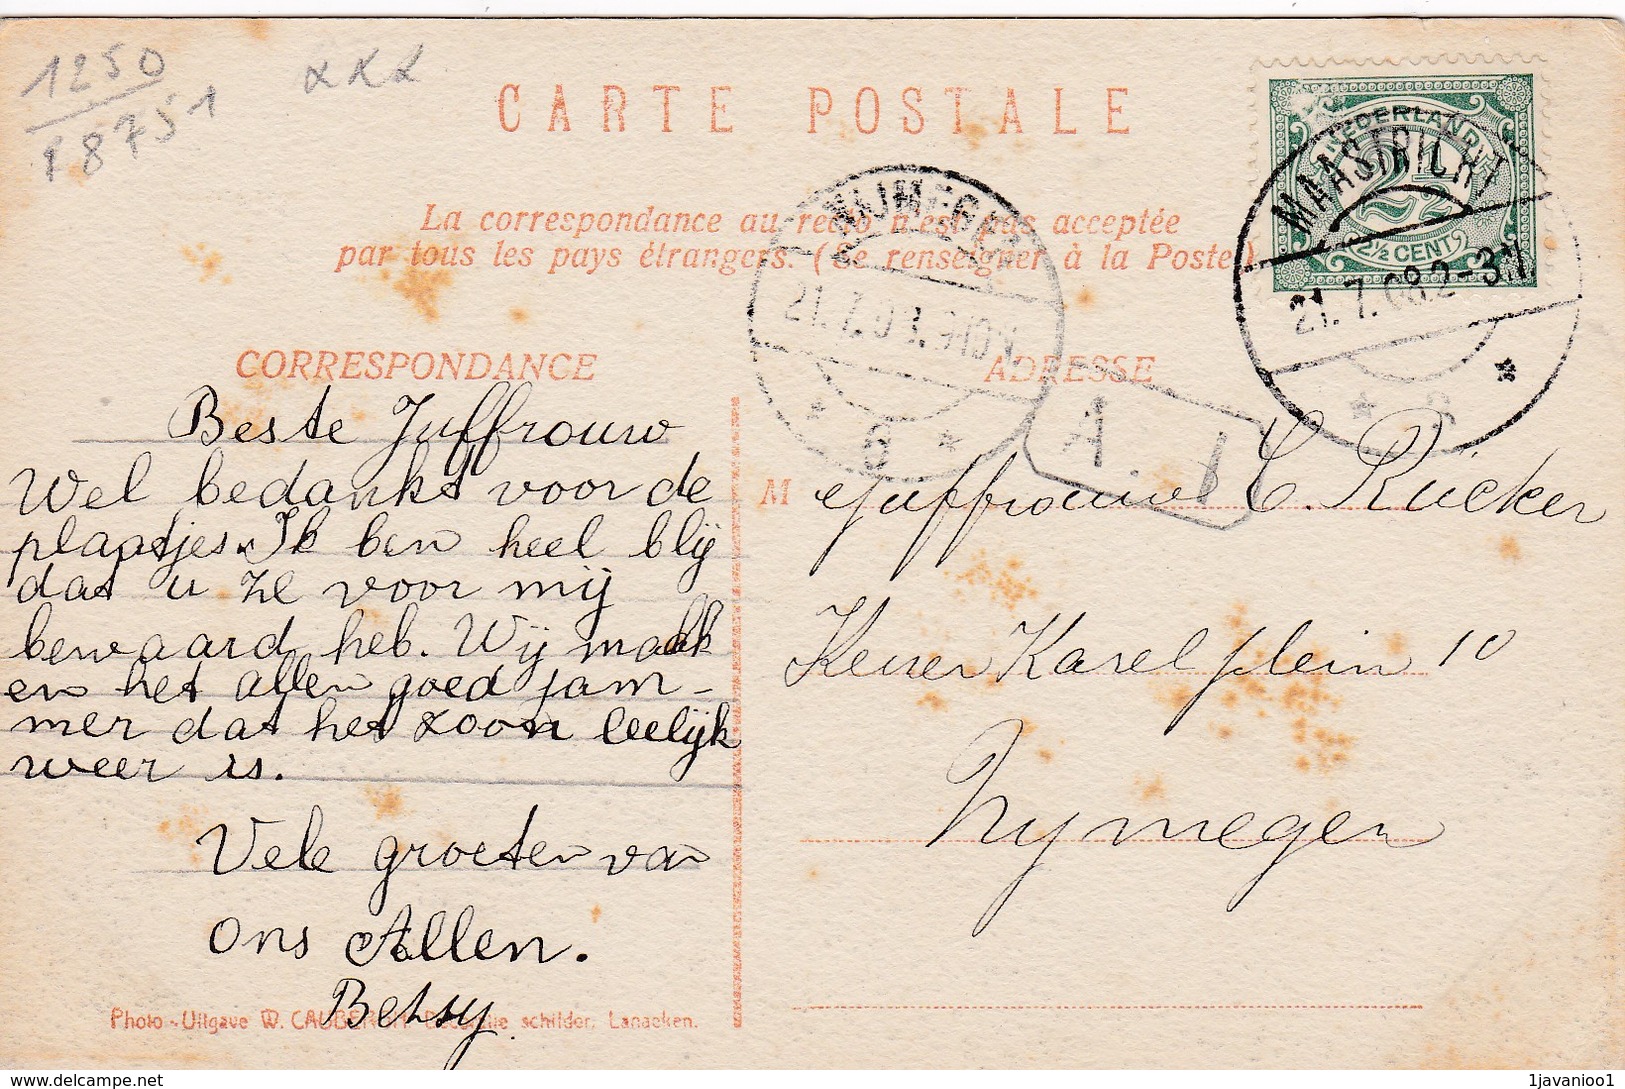 1250
18751
CARTE POSTALE
NEDERLAND
2½
2½ CENT
MAASTRICHT
21.7.08.2-3.N
NIJMEGEN
6
La correspondance au recto n'est pas acceptée
par tous les pays étrangers. (Se renseigner à la Poste)
CORRESPONDANCE
ADRESSE
A.
Beste Juffrouw
Wel bedankt voor de
plaatjes. Ik ben heel blij
dat u ze voor mij
bewaard heb. Wij maak
en het allen goed jam-
mer dat het zoon leelijk
weer is.
Vele groeten van
ons Allen.
Betsy
M Juffrouw C. Rücker
Keizer Karelplein 10
Nymegen
Photo-Uitgave W. schilder, Lanaeken.
1javanioo1